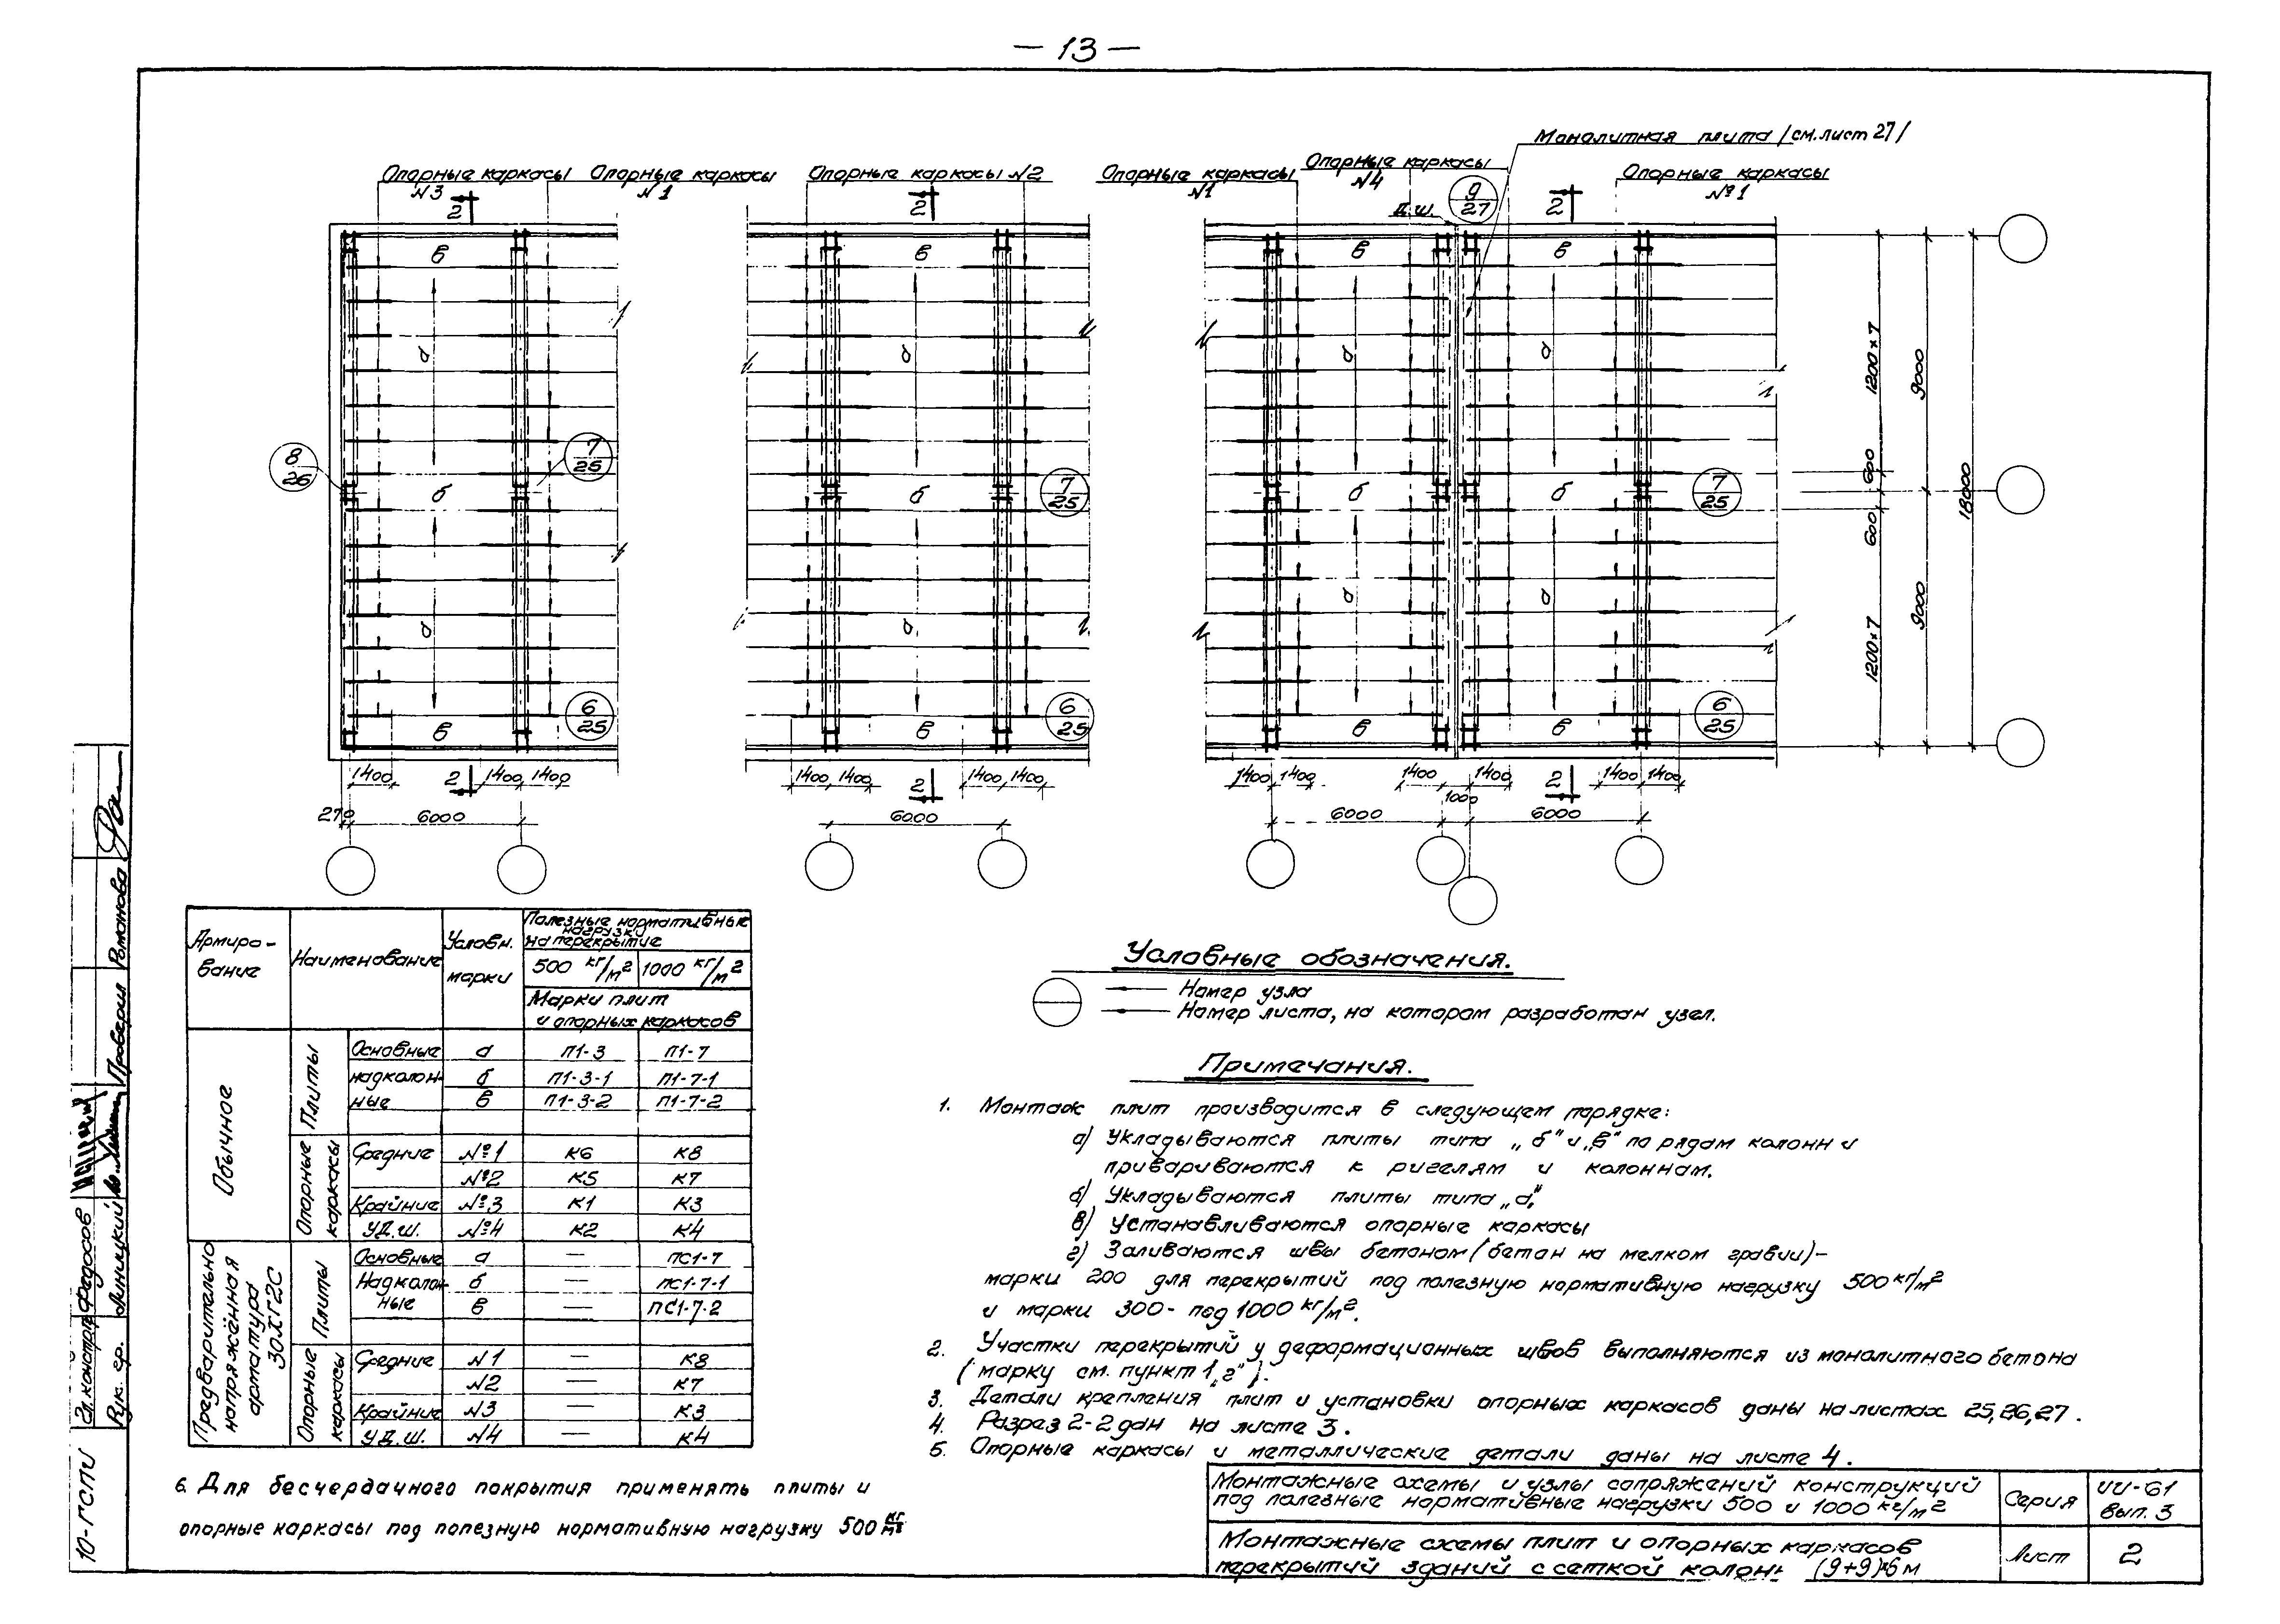 — 13 —
Монолитная плита /см. лист 27/
Опорные каркасы
N3
Опорные каркасы
N1
Опорные каркасы N2
Опорные каркасы
N1
Опорные каркасы
N4
Опорные каркасы
№1
Д.Ш.
9
27
2
2
2
в
в
в
в
а
а
а
а
8
26
7
25
7
25
7
25
б
б
б
б
а
а
а
а
6
25
6
25
6
25
в
в
в
в
1200×7
600
600
1200×7
9000
9000
18000
1400
2
1400
1400
1400
1400
2
1400
1400
1400
1400
1400
1400
2
1400
1400
1000
270
6000
6000
6000
6000
Армиро-
вание
Наименование
Условн.
марки
Полезные нормативные
нагрузки
на перекрытие
500 кг/м2
1000 кг/м2
Марки плит
и опорных каркасов
Обычное
Плиты
Основные а П1-3 П1-7
надколон- б П1-3-1 П1-7-1
ные в П1-3-2 П1-7-2
Опорные
каркасы
Средние №1 К6 К8
№2 К5 К7
Крайние №3 К1 К3
У Д.Ш. №4 К2 К4
Предварительно
напряжённая
арматура
30ХГ2С
Плиты
Основные а — ПС1-7
Надколон- б — ПС1-7-1
ные в — ПС1-7-2
Опорные
каркасы
Средние N1 — К8
N2 — К7
Крайние N3 — К3
У Д.Ш. N4 — К4
Условные обозначения.
Номер узла
Номер листа, на котором разработан узел.
Примечания.
1. Монтаж плит производится в следующем порядке:
а) Укладываются плиты типа „б" и „в" по рядам колонн и
привариваются к ригелям и колоннам.
б) Укладываются плиты типа „а".
в) Устанавливаются опорные каркасы
г) Заливаются швы бетоном (бетон на мелком гравии)-
марки 200 для перекрытий под полезную нормативную нагрузку 500 кг/м2
и марки 300- под 1000 кг/м2.
2. Участки перекрытий у деформационных швов выполняются из монолитного бетона
(марку см. пункт 1 „г").
3. Детали крепления плит и установки опорных каркасов даны на листах 25,26,27.
4. Разрез 2-2 дан на листе 3.
5. Опорные каркасы и металлические детали даны на листе 4.
6. Для бесчердачного покрытия применять плиты и
опорные каркасы под полезную нормативную нагрузку 500 кг/м2
Монтажные схемы и узлы сопряжений конструкций
под полезные нормативные нагрузки 500 и 1000 кг/м2
Серия
ИИ-61
Вып. 3
Монтажные схемы плит и опорных каркасов
перекрытий зданий с сеткой колонн (9+9)×6 м
Лист
2
10-ГСПИ
Гл. констр. Федосов
Рук. гр. Линицкий
Проверил Романова